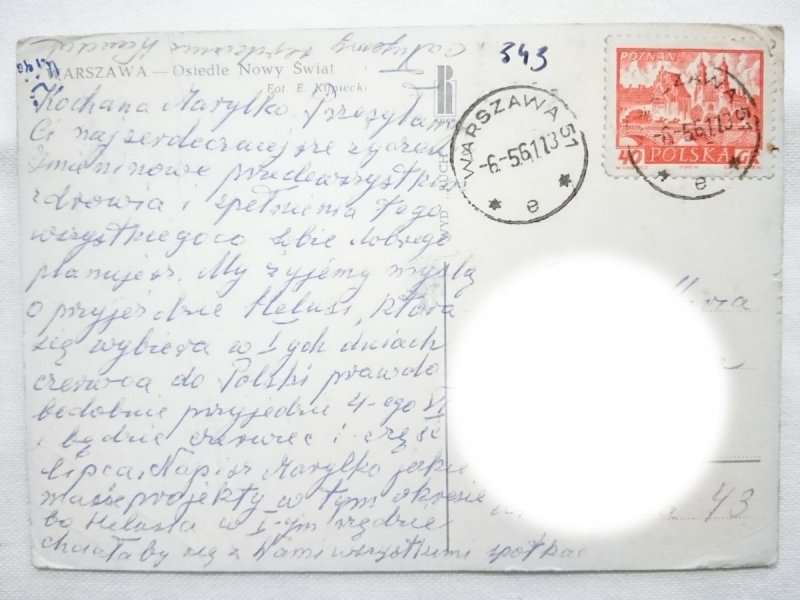 Całujemy serdecznie
WARSZAWA — Osiedle Nowy Świat
Fot. E. Kupiecki
343
RUCH
POZNAŃ
40 POLSKA GR
WARSZAWA 51
-6.-5.61.17
e
Kochana Marylko. Przesyłam
Ci najserdeczniejsze życzenia
imieninowe przedewszystkim
zdrowia i spełnienia tego
wszystkiego co sobie dobrego
planujesz. My żyjemy myślą
o przyjeździe Helusi, która
się wybiera w I-ych dniach
czerwca do Polski prawdo
bodobnie przyjedzie 4-ego VI
i będzie czerwiec i część
lipca. Napisz Marylko jakie
macie projekty w tym okresie
bo Helusia w I-ym rzędzie
chciałaby się z Wami wszystkimi spotkać
43